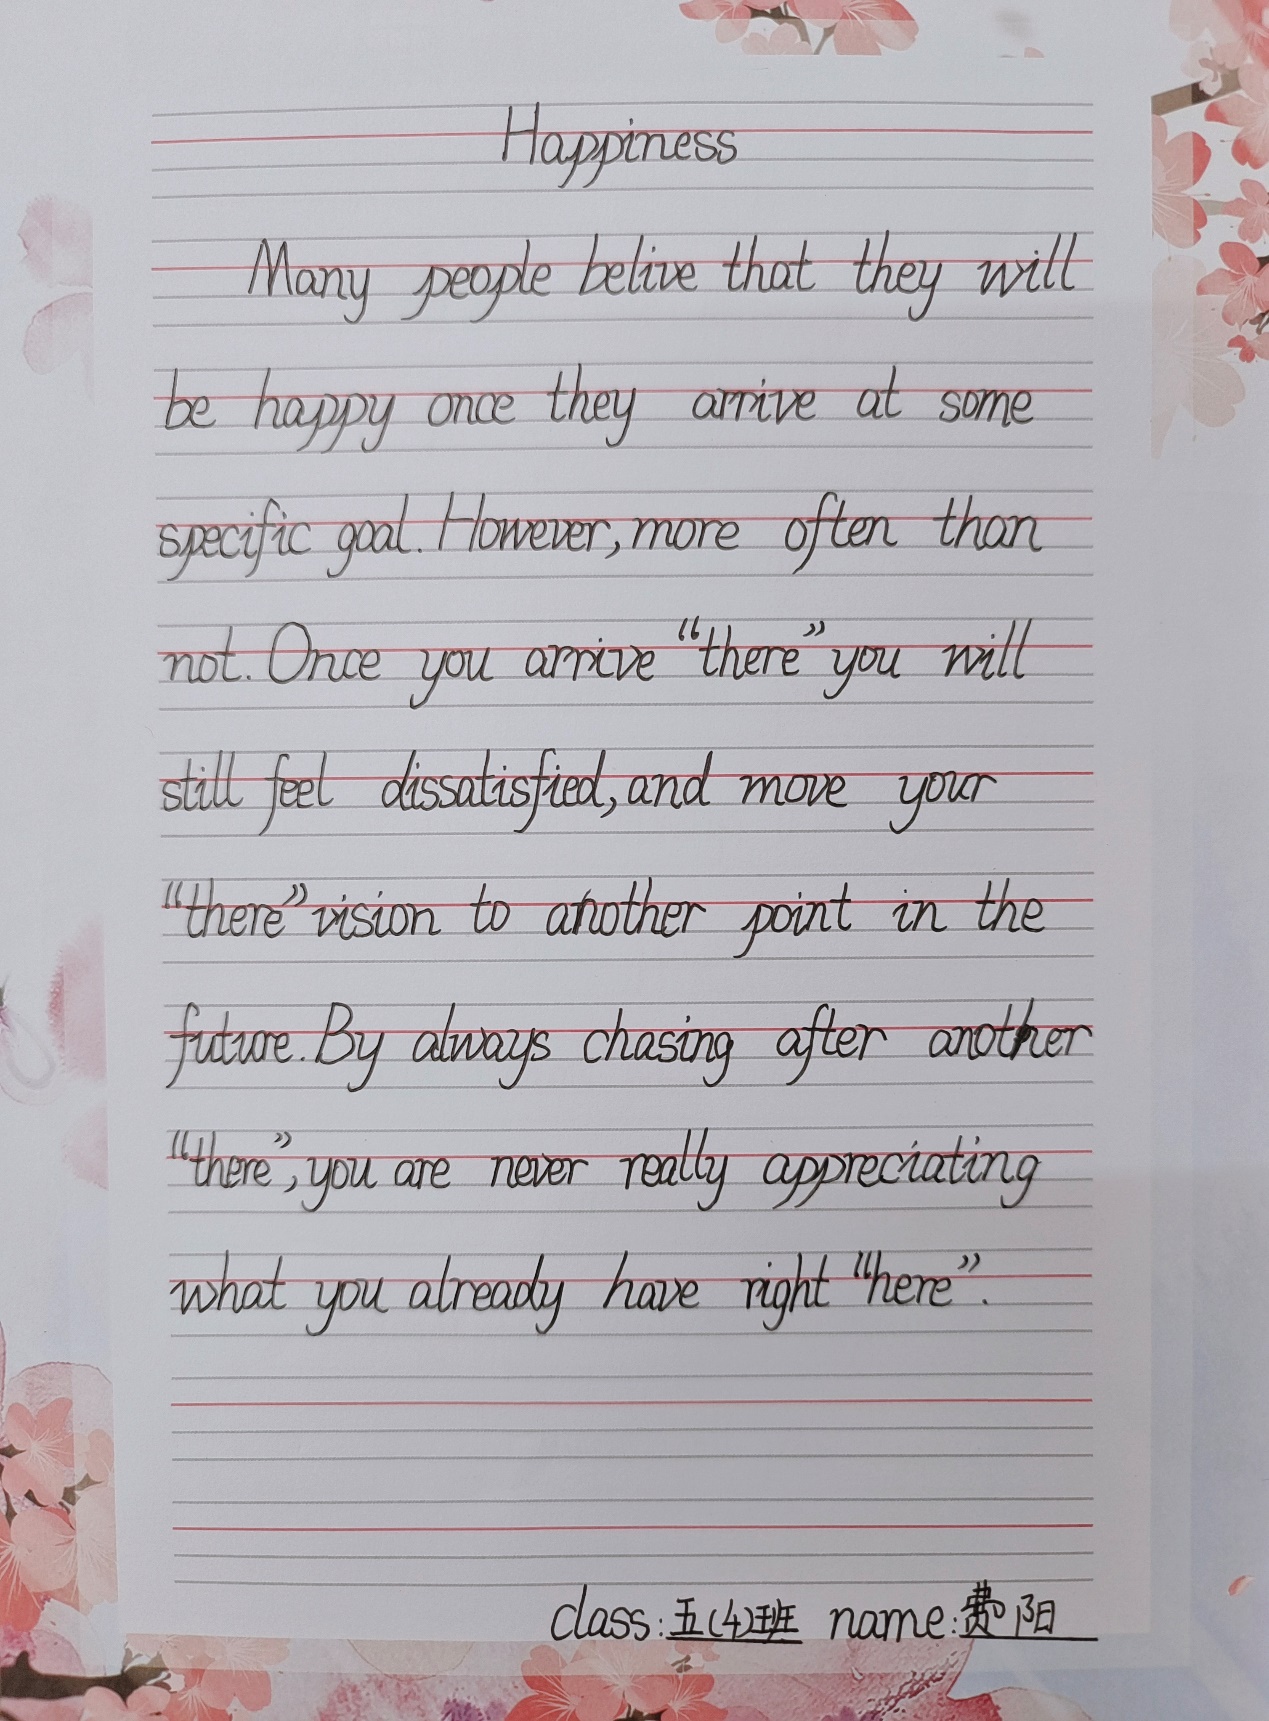 Happiness
Many people belive that they will
be happy once they arrive at some
specific goal. However, more often than
not. Once you arrive “there” you will
still feel dissatisfied, and move your
“there” vision to another point in the
future. By always chasing after another
“there”, you are never really appreciating
what you already have right “here”.
class: 五(4)班 name: 费阳